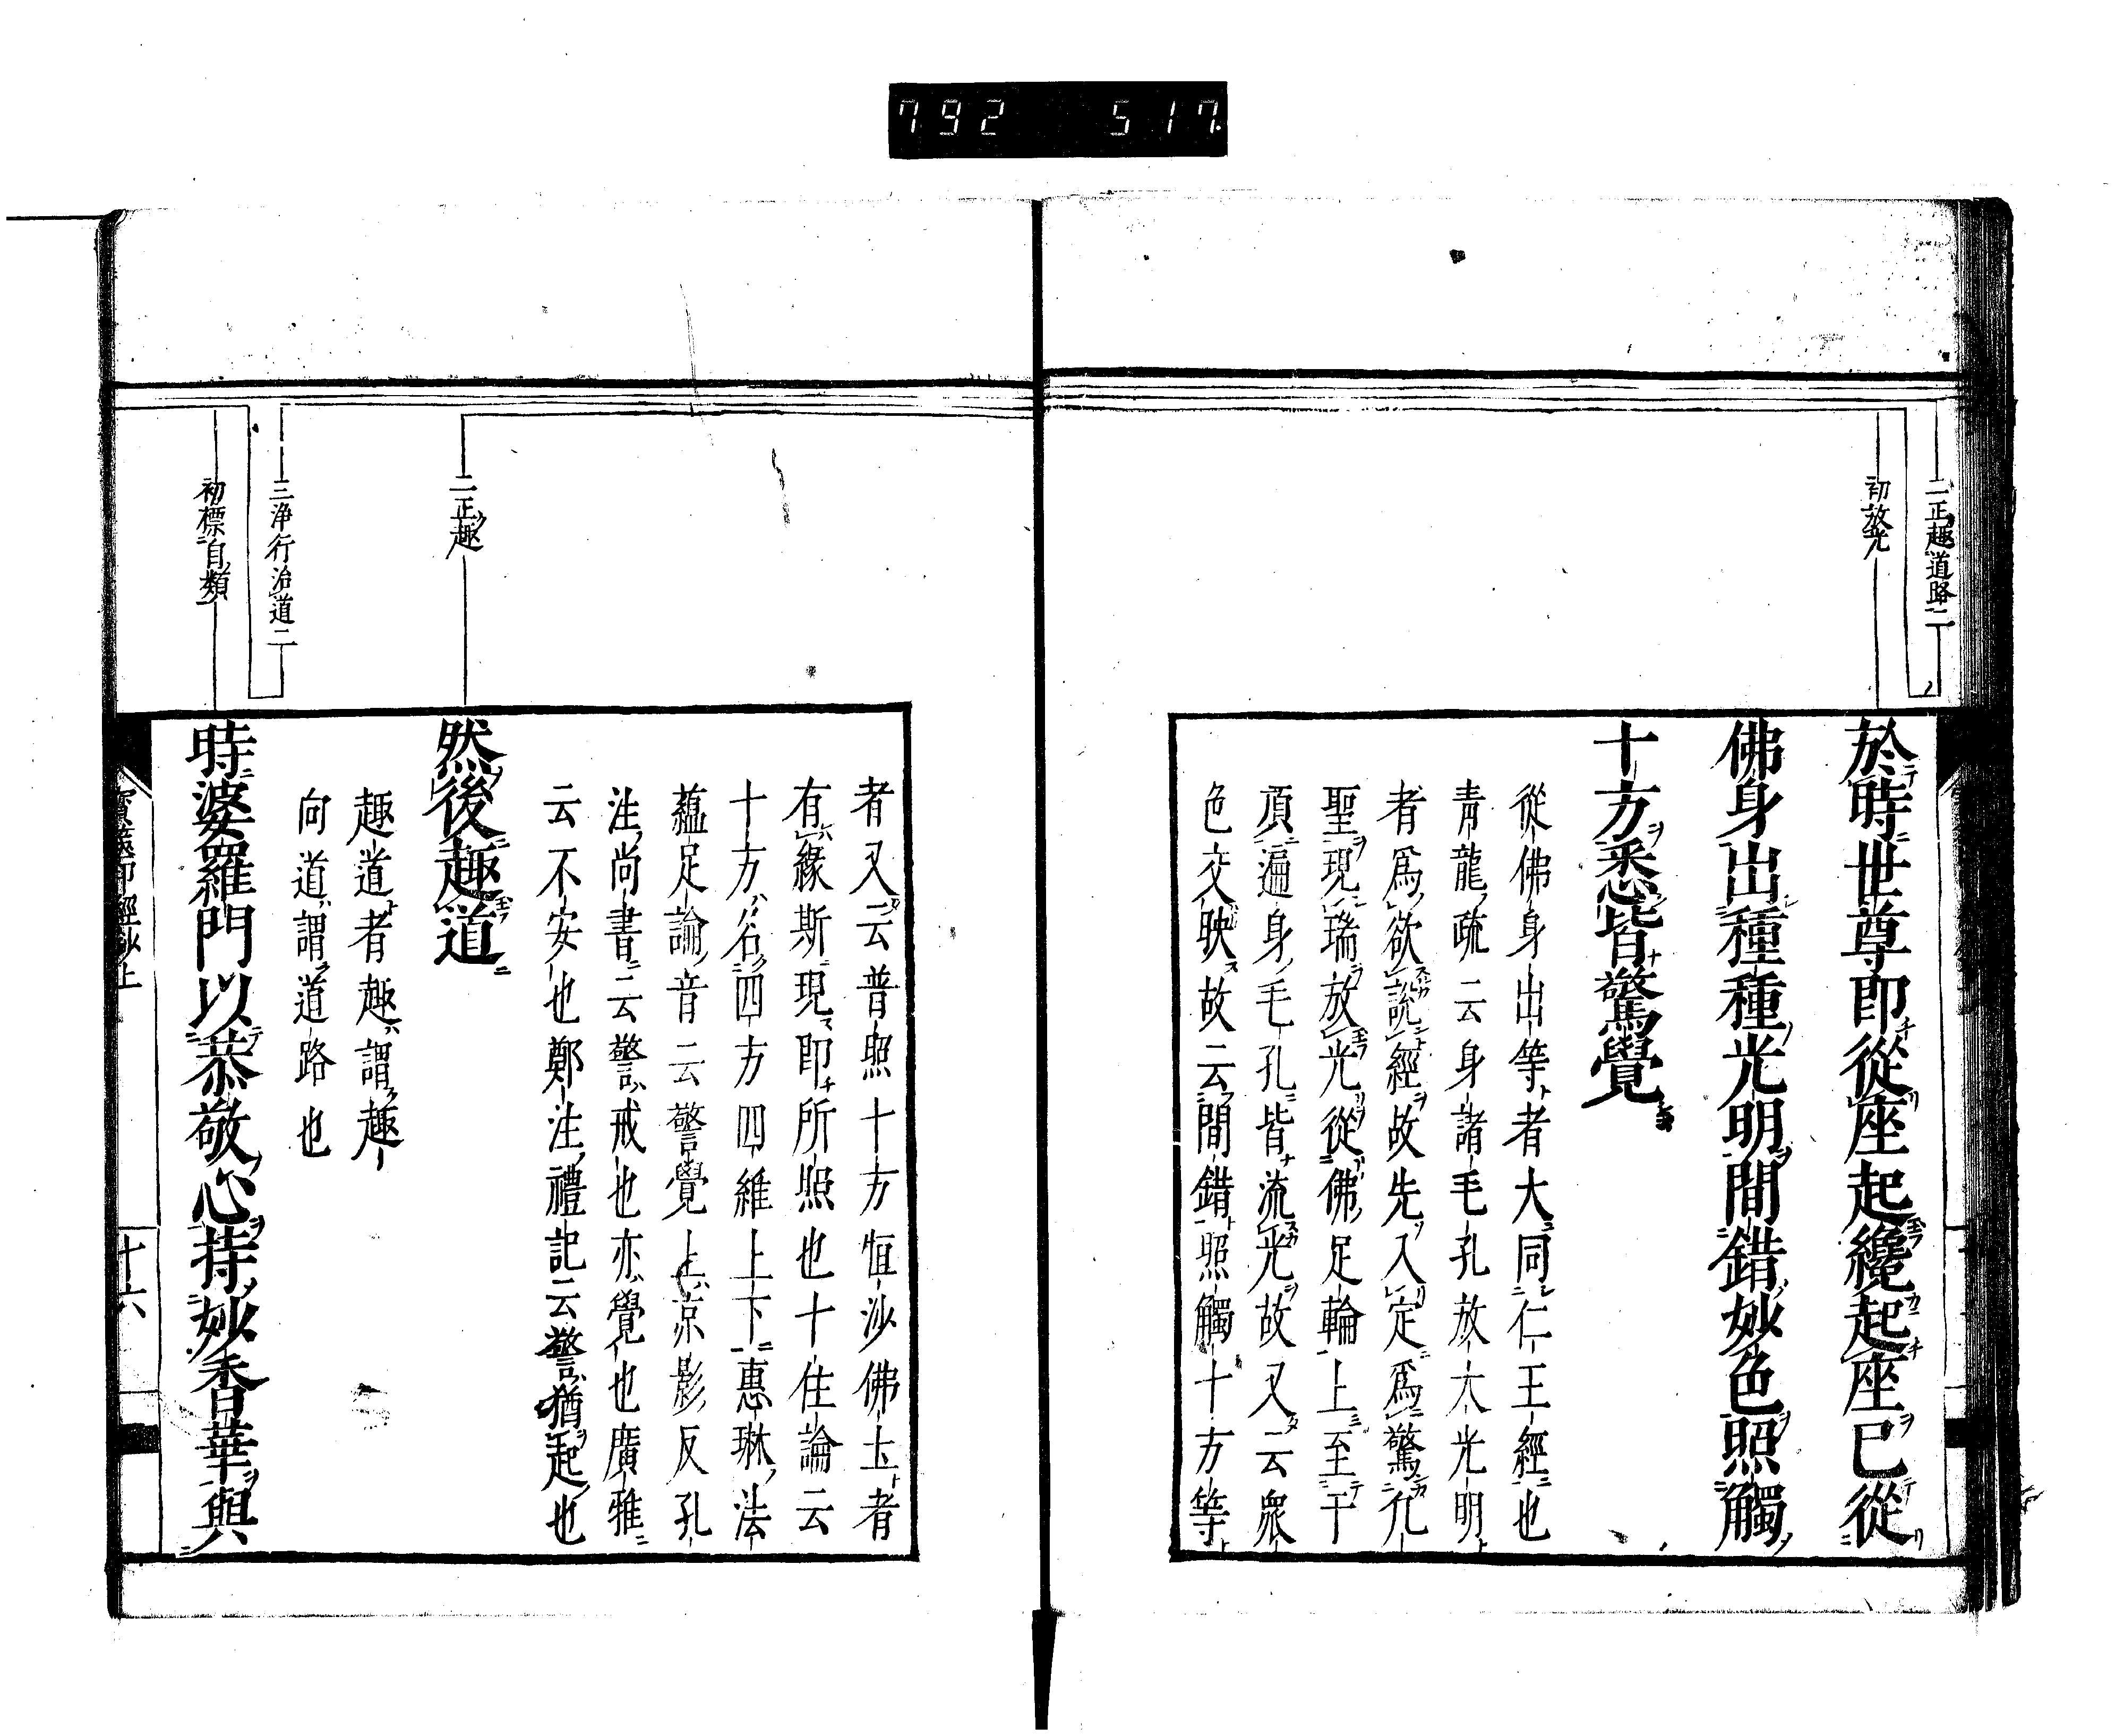 792 517
二正趣道路二
初放光
於時世尊即從座起纔起座已從
佛身出種種光明間錯妙色照觸
十方悉皆驚覺
從佛身出等者大同仁王經也
青龍疏云身諸毛孔放大光明
者爲欲說經故先入定爲驚凡
聖現瑞放光從佛足輪上至于
頂遍身毛孔皆流光故又云衆
色交映故云間錯照觸十方等
者又云普照十方恒沙佛土者
有緣斯現即所照也十住論云
十方名四方四維上下惠琳法
蘊足論音云警覺上京影反孔
注尚書云警戒也亦覺也廣雅
云不安也鄭注禮記云警猶起也
二正趣
然後趣道
趣道者趣謂趣
向道謂道路也
三淨行治道二
初標自類
時婆羅門以恭敬心持妙香華與
寶篋印經鈔上
十六